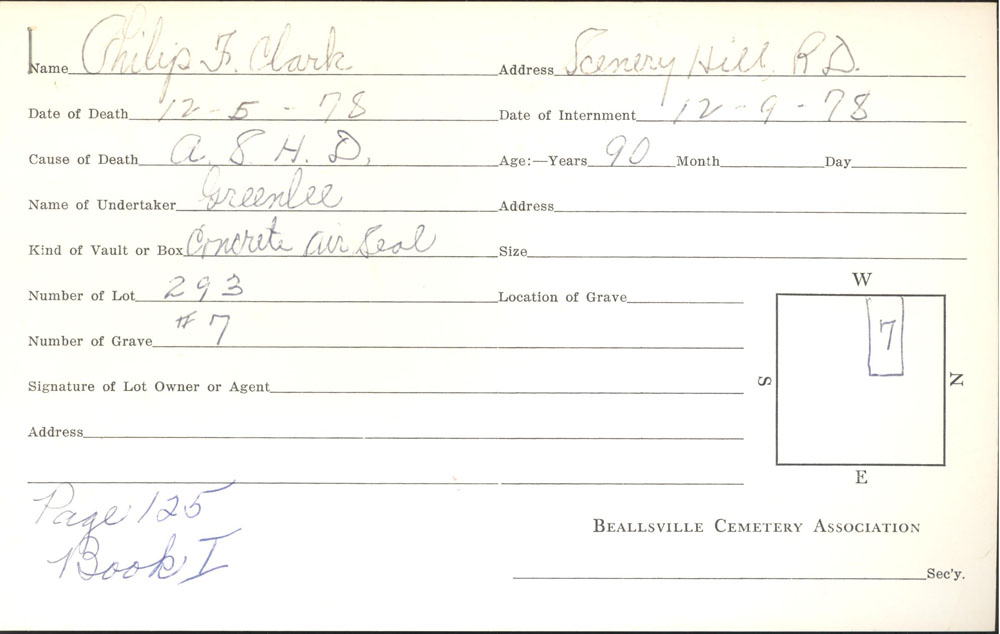 Name Philip F. Clark Address Scenery Hill, R.D.
Date of Death 12-5-78 Date of Internment 12-9-78
Cause of Death A. S. H. D. Age:—Years 90 Month Day
Name of Undertaker Greenlee Address
Kind of Vault or Box Concrete Air Seal Size
Number of Lot 293 Location of Grave
Number of Grave #7
Signature of Lot Owner or Agent
Address
W
7
S N
E
Page 125
Book I
Beallsville Cemetery Association
Sec'y.